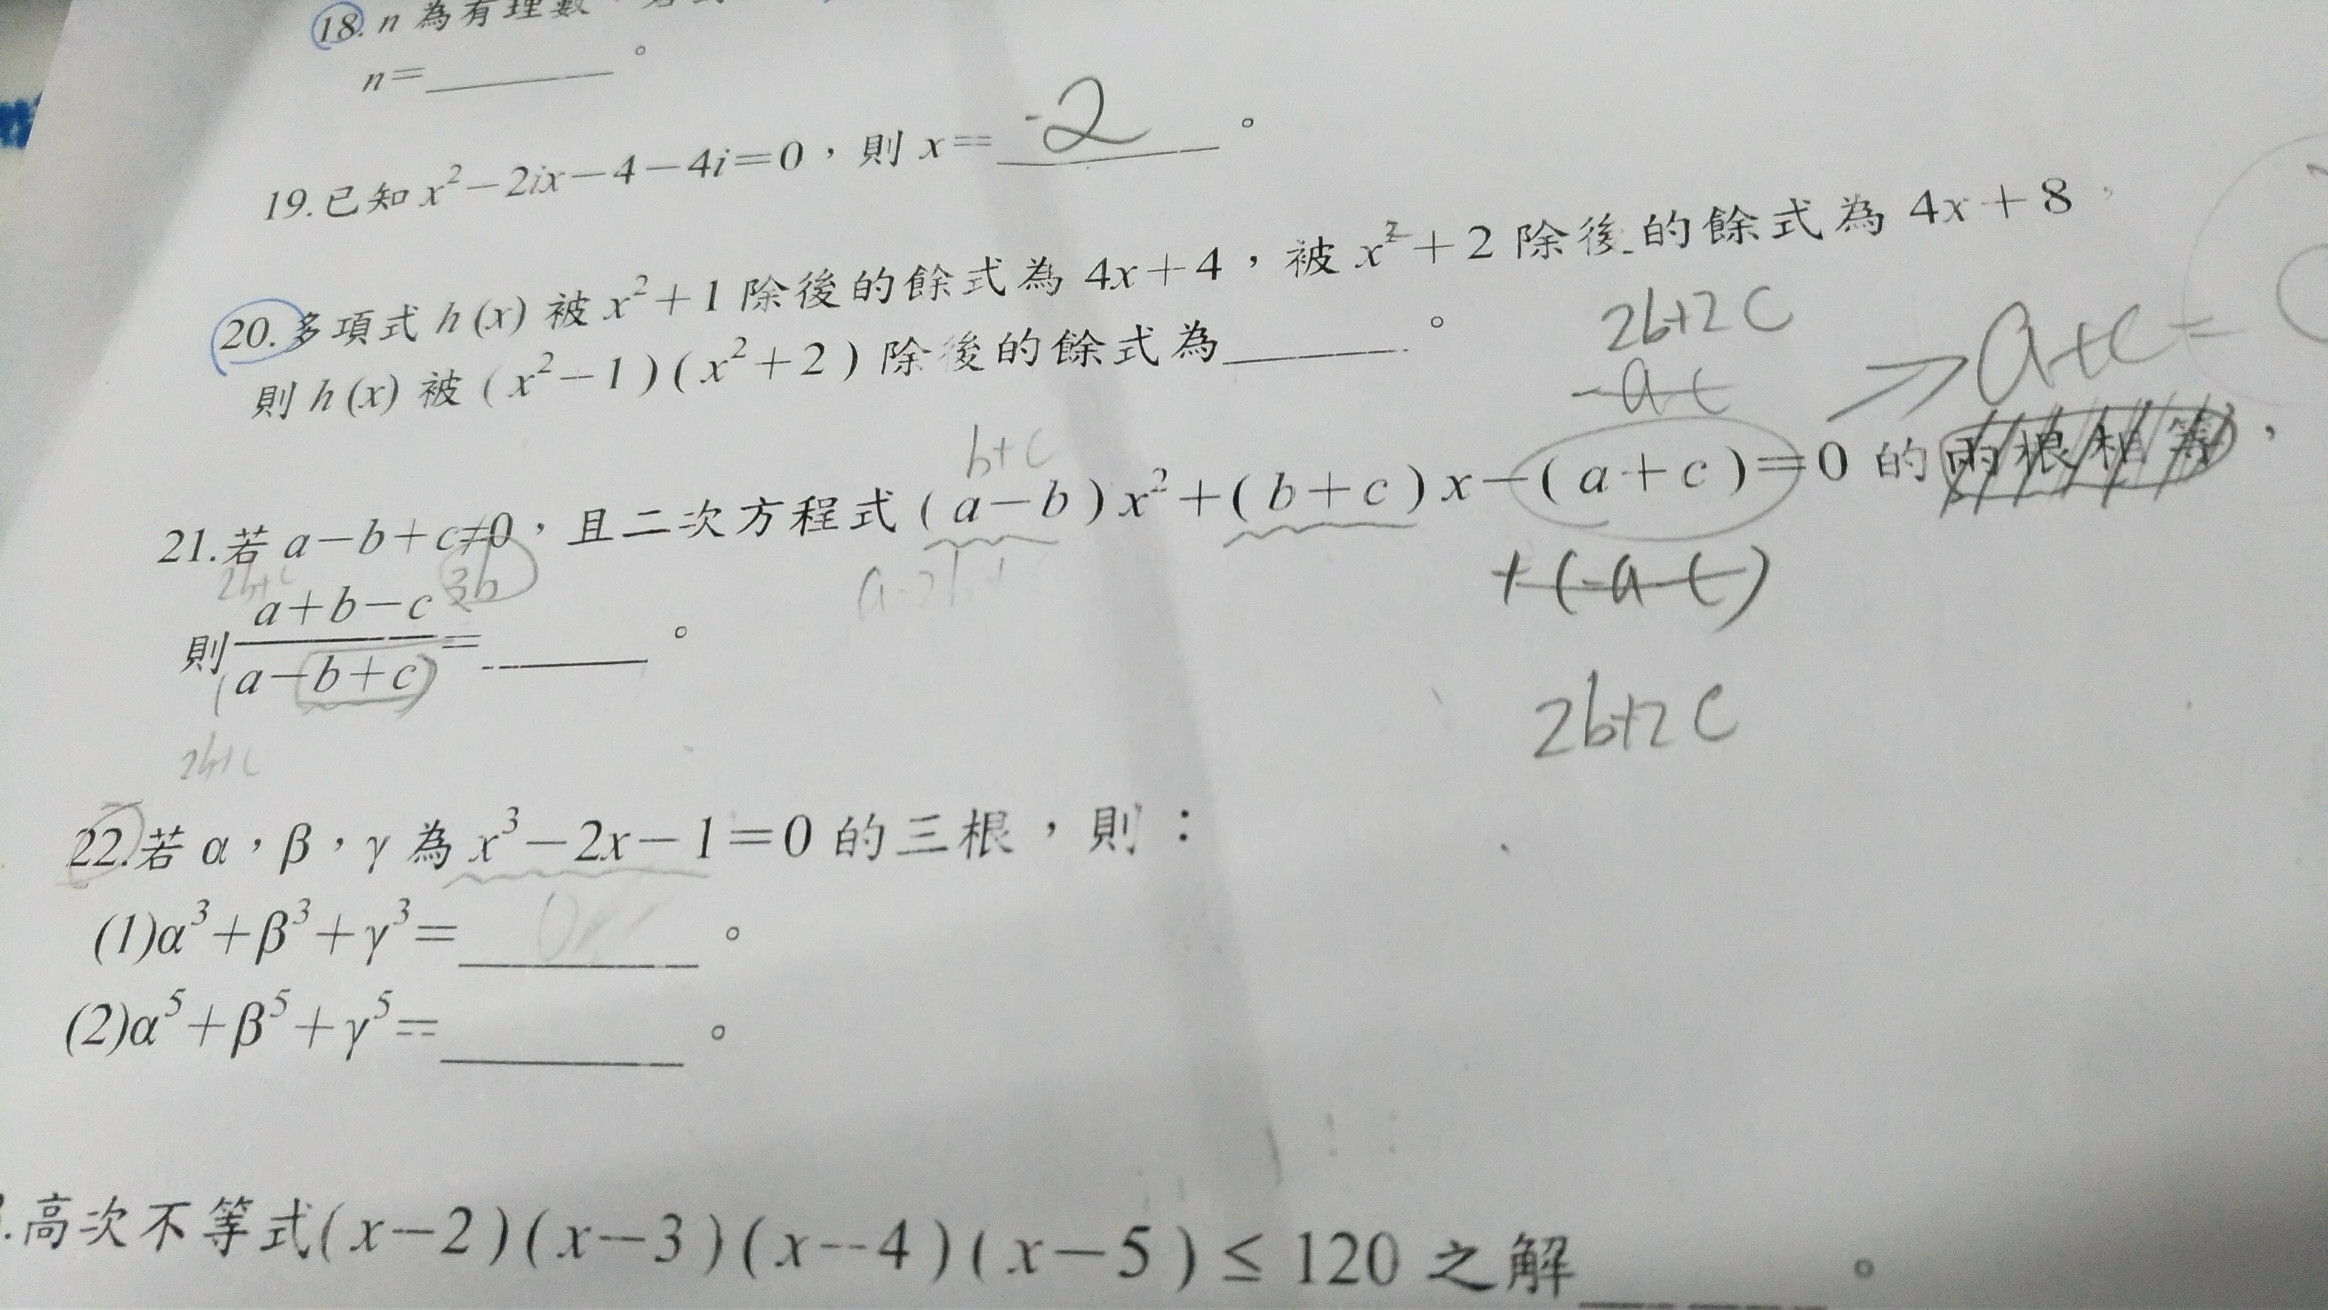 18. n 為有理數，
n=______。
19.已知 x²－2ix－4－4i=0，則 x= -2 。
20.多項式 h(x) 被 x²+1 除後的餘式為 4x+4，被 x²+2 除後的餘式為 4x+8，
則 h(x) 被 (x²－1)(x²+2) 除後的餘式為______。
2b+2c
-a-c
→ a+c=
b+c
21.若 a－b+c≠0，且二次方程式 (a－b)x²+(b+c)x－(a+c)=0 的兩根相等，
2b+c
3b
+(-a-c)
則 (a+b－c)/(a－b+c) =______。
2b+2c
2b+c
22.若 α，β，γ 為 x³－2x－1=0 的三根，則：
(1)α³+β³+γ³= 0 。
(2)α⁵+β⁵+γ⁵=______。
.高次不等式(x－2)(x－3)(x－4)(x－5)≤120 之解______。